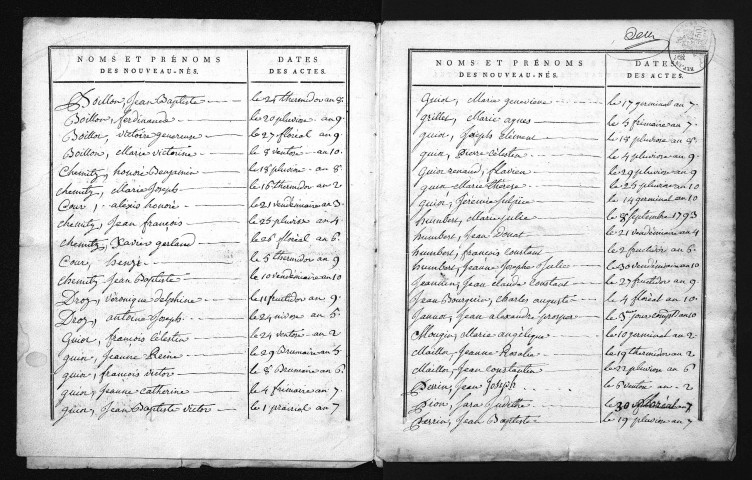 NOMS ET PRÉNOMS DES NOUVEAU-NÉS. DATES DES ACTES.
Boillon, Jean Baptiste le 24 thermidor an 8.
Boillon, ferdinande le 20 pluviose an 9.
Boillon, victoire genereuse le 27 floréal an 9.
Boillon, Marie victorine le 8 ventose an 10.
Chemity, honoré le 18 pluviose an 8.
Chemity, Marie Joseph le 16 thermidor an 2
Cour, alexis honoré le 21 vendemiaire an 3.
chemity, Jean françois le 25 pluviose an 4.
chemity, Xavier le 26 floréal an 6.
Cour, le 5 thermidor an 9
chemity, Jean Baptiste le 10 vendémiaire an 10
Droz, véronique delphine le 11 fructidor an 9.
Droz, antoine Joseph le 24 nivose an 5.
Guiot, françois Célestin le 24 ventose an 2
guiot, Jeanne Reine le 29 Brumaire an 5
guiot, françois victor le 8 Brumaire an 6.
guiot, Jeanne catherine le 4 frimaire an 7.
guiot, Jean Baptiste victor le 1er prairial an 7
NOMS ET PRÉNOMS DES NOUVEAU-NÉS. DATES DES ACTES.
Guiot, Marie genevieve le 17 germinal an 7.
grillet, Marie agnes le 5 frimaire an 7.
guiot, Joseph Clément le 18 pluviose an 8.
guiot, Pierre Célestin le 4 pluviose an 9.
Guiot renaud, flavien le 29 pluviose an 9
guiot Marie thérèse le 25 pluviose an 10
guiot, Jérémie Sulpice le 14 germinal an 10
humbert, Marie Julie le 8 septembre 1793
humbert, Jean Donat le 21 vendémiaire an 4
humbert, françois constant le 2 fructidor an 6.
humbert, Jeanne Josephe Julie le 30 vendémiaire an 10
Jean claude constant le 27 fructidor an 9.
Jean Bourguin, charles auguste le 4 floréal an 10.
Jean alexandre prosper le 5e jour compl. an 10
Mougin, Marie angélique le 10 germinal an 2.
Maillot, Jeanne Rosalie le 19 thermidor an 2.
Maillot, Jean constantin le 22 pluviose an 6
Perrin, Jean Joseph le 6 ventose an 2
Pion, Sara Judithe le 30 floréal an 7
Perrin, Jean Baptiste le 19 pluviose an 7